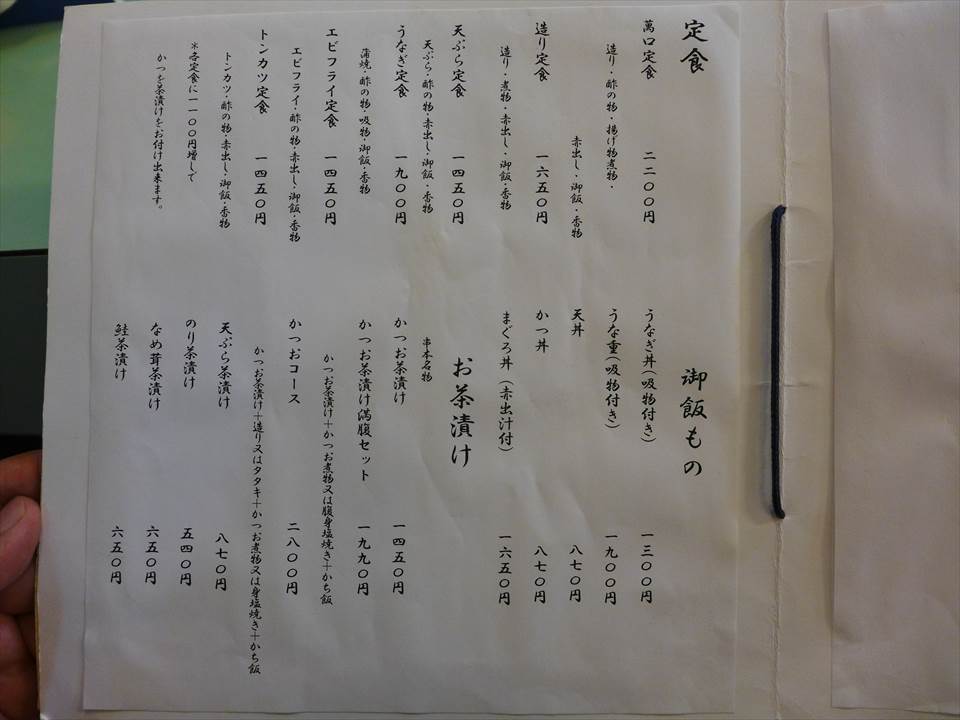 定食
萬口定食 二二〇〇円
造り・酢の物・揚げ物煮物・
赤出し・御飯・香物
造り定食 一六五〇円
造り・煮物・赤出し・御飯・香物
天ぷら定食 一四五〇円
天ぷら・酢の物・赤出し・御飯・香物
うなぎ定食 一九〇〇円
蒲焼・酢の物・吸物・御飯・香物
エビフライ定食 一四五〇円
エビフライ・酢の物・赤出し・御飯・香物
トンカツ定食 一四五〇円
トンカツ・酢の物・赤出し・御飯・香物
＊各定食に一一〇〇円増しで
かつを茶漬けをお付け出来ます。
御飯もの
うなぎ丼(吸物付き) 一三〇〇円
うな重(吸物付き) 一九〇〇円
天丼 八七〇円
かつ丼 八七〇円
まぐろ丼(赤出汁付) 一六五〇円
お茶漬け
串本名物
かつお茶漬け 一四五〇円
かつお茶漬け満腹セット 一九九〇円
かつお茶漬け＋かつお煮物又は腹身塩焼き＋かち飯
かつおコース 二八〇〇円
かつお茶漬け＋造り又はタタキ＋かつお煮物又は身塩焼き＋かち飯
天ぷら茶漬け 八七〇円
のり茶漬け 五四〇円
なめ茸茶漬け 六五〇円
鮭茶漬け 六五〇円